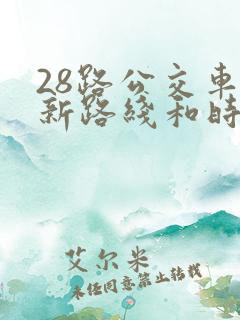 28路公交车
新路线和时
艾尔米
未经同意禁止转载